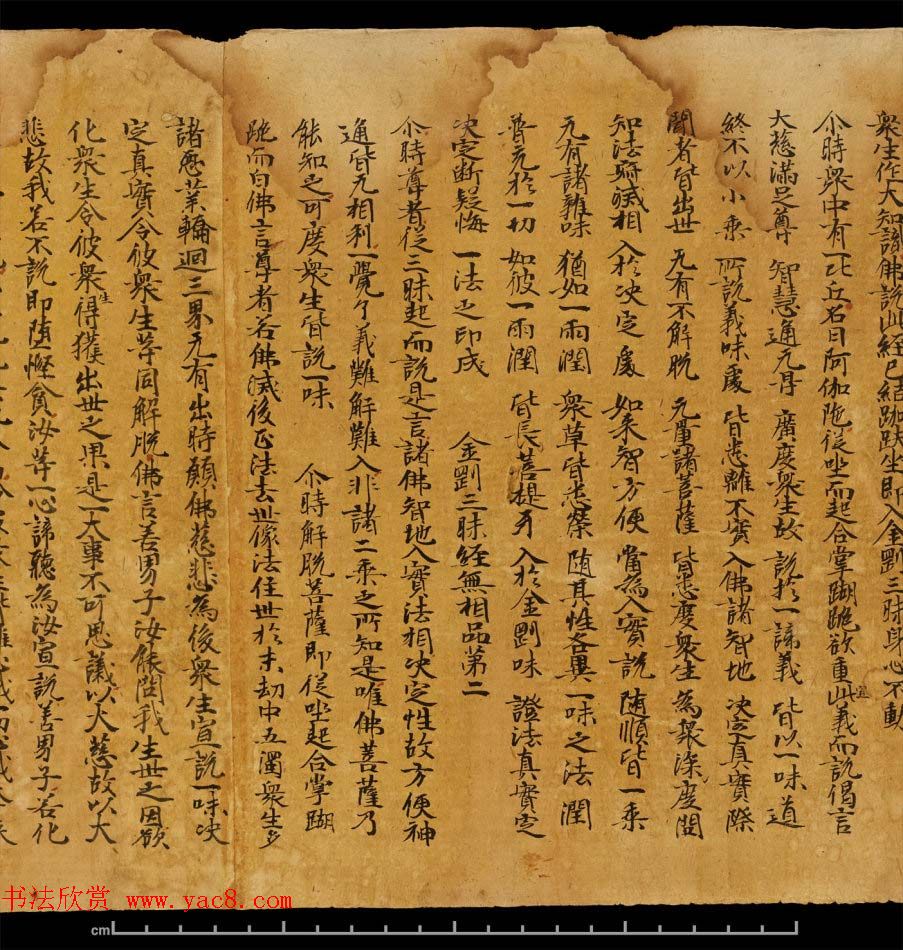 衆生作大知識佛說此經已結跏趺坐即入金剛三昧身心不動
尒時衆中有一比丘名曰阿伽陁從坐而起合掌䠒跪欲重宣此義而說偈言
大慈滿足尊 智慧通无㝵 廣度衆生故 說於一諦義 皆以一味道
終不以小乘 所說義味處 皆悉離不實 入佛諸智地 决定真實際
聞者皆出世 无有不解脫 无量諸菩薩 皆悉度衆生 為衆深廣問
知法寂滅相 入於决定處 如来智方便 當為入實說 随順皆一乘
无有諸雜味 猶如一雨潤 衆草皆悉榮 随其性各異 一味之法潤
普充於一切 如彼一雨潤 皆長菩提牙 入於金剛味 證法真實定
决定断疑悔 一法之印成 金剛三昧經無相品第二
尒時尊者從三昧起而說是言諸佛智地入實法相决定性故方便神
通皆无相利一覺了義難解難入非諸二乘之所知是唯佛菩薩乃
能知之可度衆生皆說一味 尒時解脫菩薩即從坐起合掌䠒
跪而白佛言尊者若佛滅後正法去世像法住世於末劫中五濁衆生多
諸惡業輪迴三界无有出時願佛慈悲為後衆生宣說一味决
定真實令彼衆生等同解脫佛言善男子汝能問我生世之因欲
化衆生令彼衆生得獲出世之果是一大事不可思議以大慈故以大
悲故我若不說即堕慳貪汝等一心諦聽為汝宣說善男子若化
书法欣赏 www.yac8.com
cm